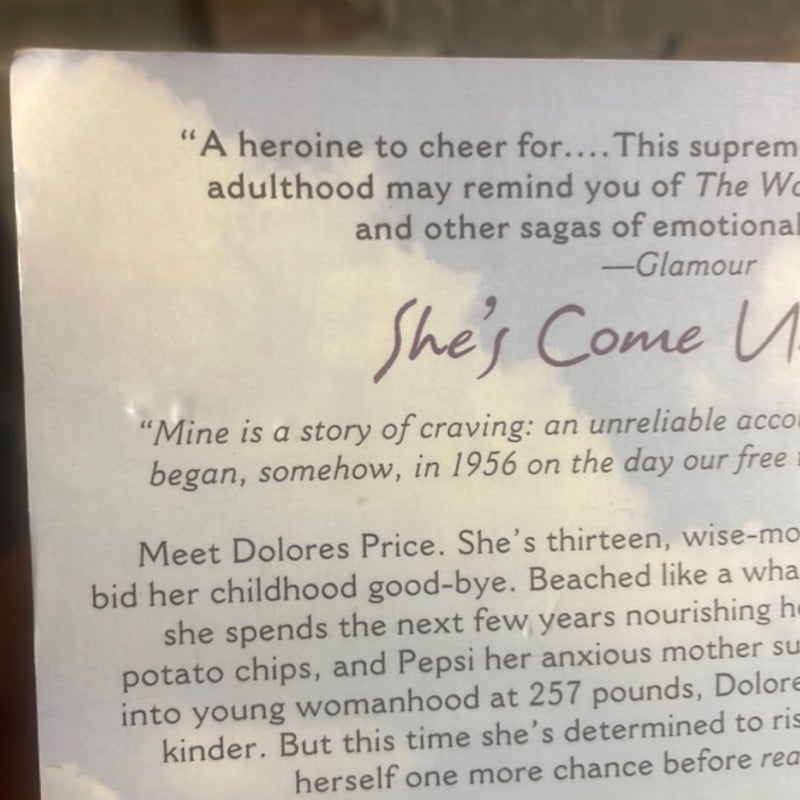 “A heroine to cheer for....This suprem
adulthood may remind you of The Wo
and other sagas of emotional
—Glamour
She’s Come U
“Mine is a story of craving: an unreliable accou
began, somehow, in 1956 on the day our free t
Meet Dolores Price. She’s thirteen, wise-mo
bid her childhood good-bye. Beached like a wha
she spends the next few years nourishing he
potato chips, and Pepsi her anxious mother su
into young womanhood at 257 pounds, Dolore
kinder. But this time she’s determined to ris
herself one more chance before rea